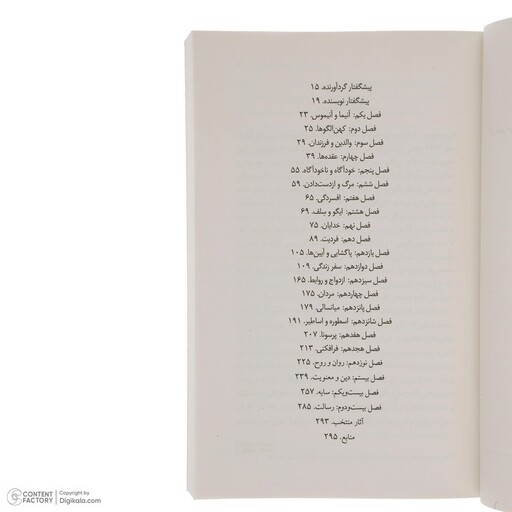 پیشگفتار گردآورنده. ۱۵
پیشگفتار نویسنده. ۱۹
فصل یکم: آنیما و آنیموس. ۲۳
فصل دوم: کهن‌الگوها. ۲۵
فصل سوم: والدین و فرزندان. ۲۹
فصل چهارم: عقده‌ها. ۳۹
فصل پنجم: خودآگاه و ناخودآگاه. ۵۵
فصل ششم: مرگ و ازدست‌دادن. ۵۹
فصل هفتم: افسردگی. ۶۵
فصل هشتم: ایگو و سِلف. ۶۹
فصل نهم: خدایان. ۷۵
فصل دهم: فردیت. ۸۹
فصل یازدهم: پاگشایی و آیین‌ها. ۱۰۵
فصل دوازدهم: سفر زندگی. ۱۰۹
فصل سیزدهم: ازدواج و روابط. ۱۶۵
فصل چهاردهم: مردان. ۱۷۵
فصل پانزدهم: میانسالی. ۱۷۹
فصل شانزدهم: اسطوره و اساطیر. ۱۹۱
فصل هفدهم: پرسونا. ۲۰۷
فصل هجدهم: فرافکنی. ۲۱۳
فصل نوزدهم: روان و روح. ۲۲۵
فصل بیستم: دین و معنویت. ۲۳۹
فصل بیست‌ویکم: سایه. ۲۵۷
فصل بیست‌ودوم: رسالت. ۲۸۵
آثار منتخب. ۲۹۳
منابع. ۲۹۵
CONTENT FACTORY | Copyright by Digikala.com